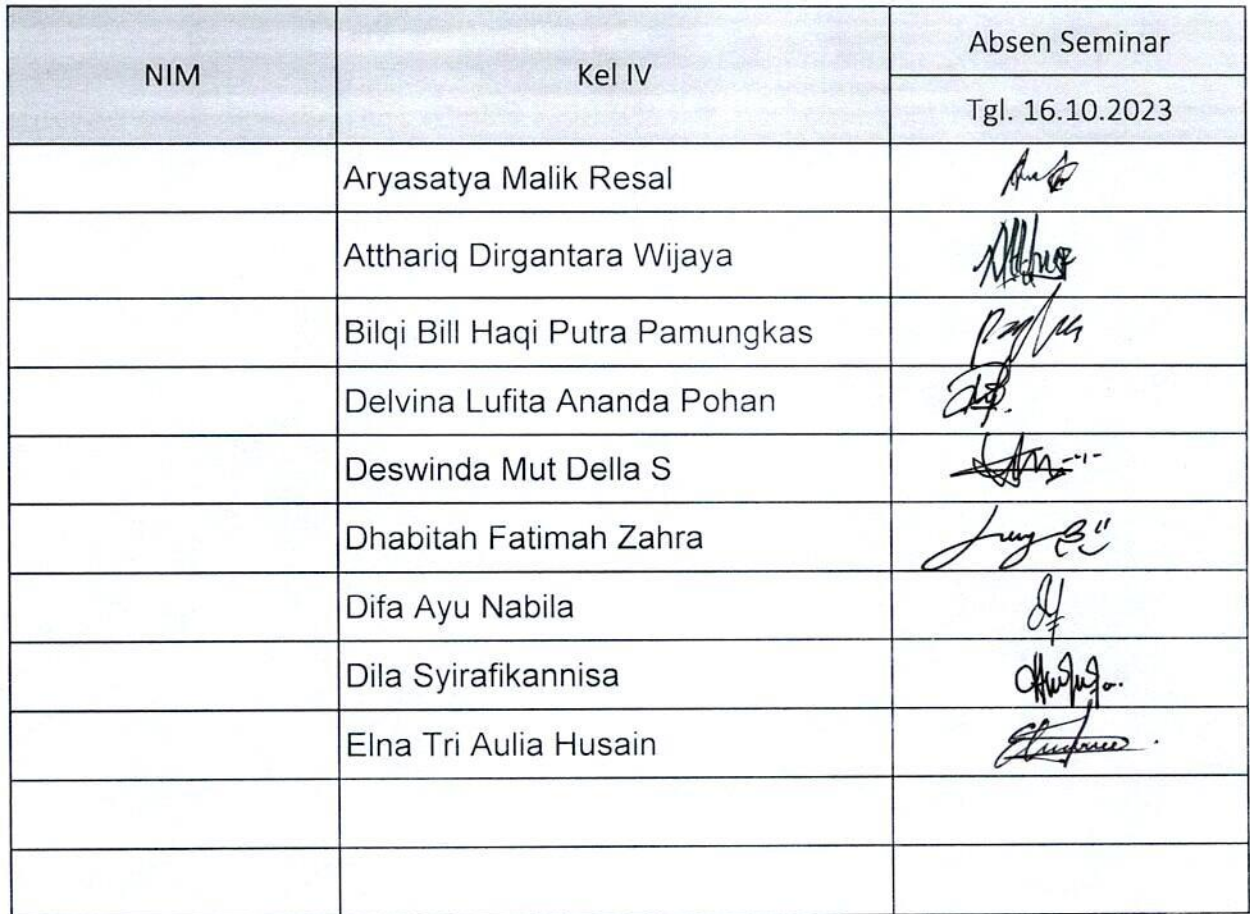 NIM
Kel IV
Absen Seminar
Tgl. 16.10.2023
Aryasatya Malik Resal
Atthariq Dirgantara Wijaya
Bilqi Bill Haqi Putra Pamungkas
Delvina Lufita Ananda Pohan
Deswinda Mut Della S
Dhabitah Fatimah Zahra
Difa Ayu Nabila
Dila Syirafikannisa
Elna Tri Aulia Husain